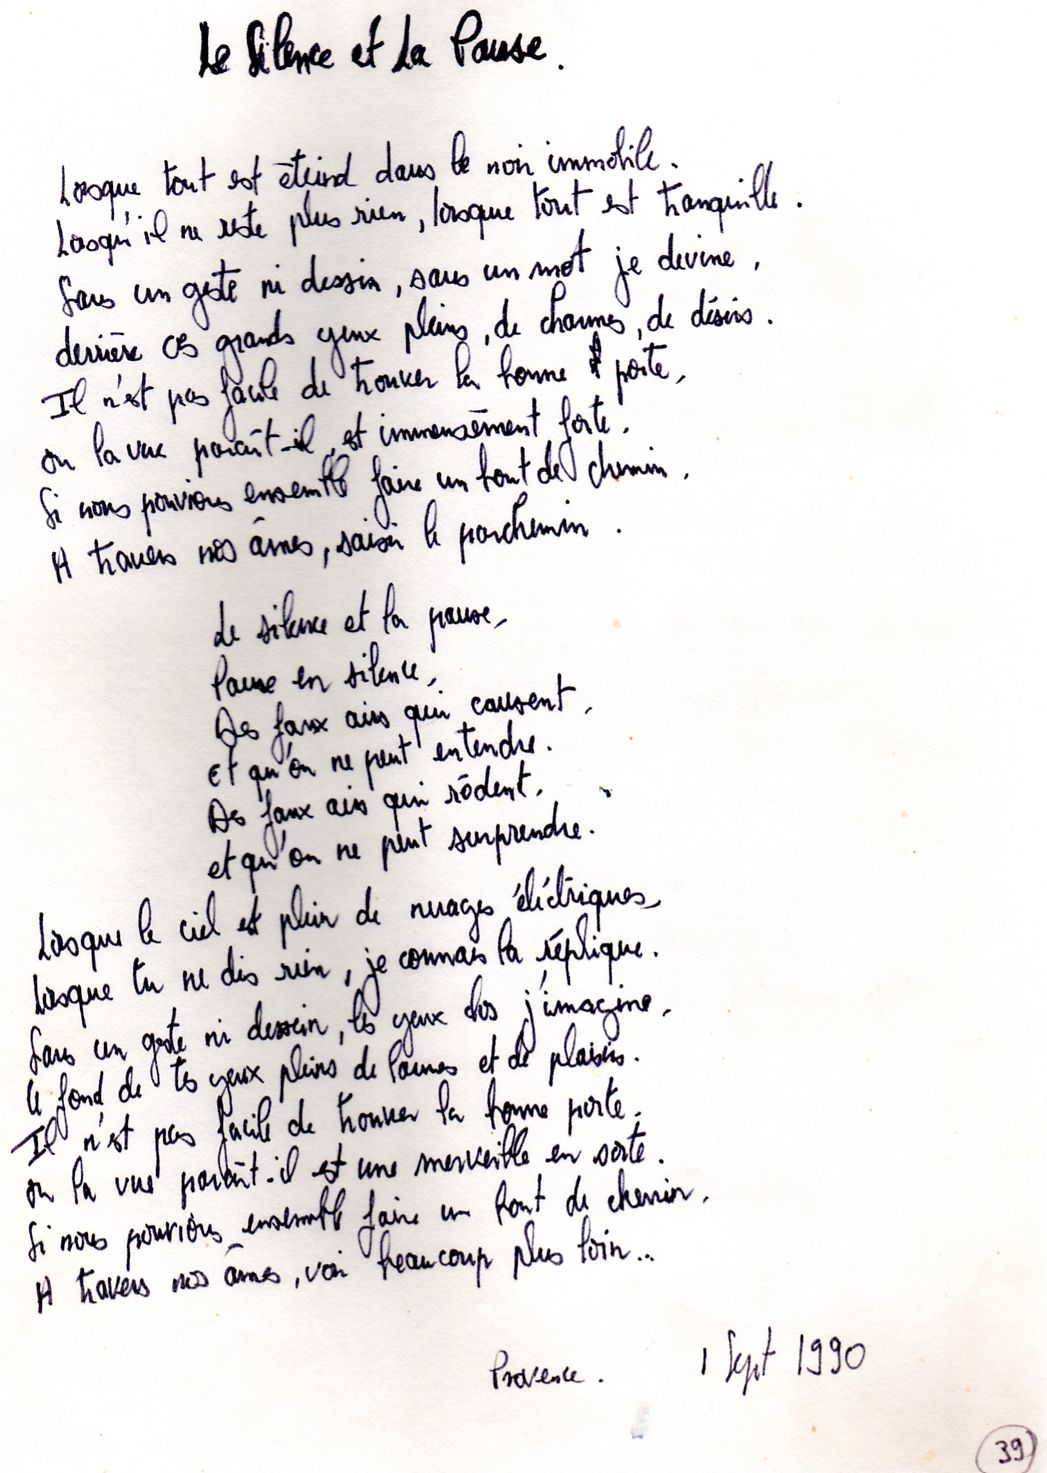 Le Silence et La Pause.
Lorsque tout est éteind dans le noir immobile.
Lorsqu'il ne reste plus rien, lorsque tout est tranquille.
Sans un geste ni dessin, sans un mot je devine,
derrière ces grands yeux pleins, de charmes, de désirs.
Il n'est pas facile de trouver la bonne porte,
ou la vue paraît-il, est immensément forte.
Si nous pouvions ensemble faire un bout de chemin,
A travers nos âmes, saisir le parchemin.
Le silence et la pause,
Pause en silence,
Des faux airs qui causent,
et qu'on ne peut entendre.
Des faux airs qui rôdent,
et qu'on ne peut surprendre.
Lorsque le ciel est plein de nuages éléctriques,
Lorsque tu ne dis rien, je connais la réplique.
Sans un geste ni dessein, les yeux clos j'imagine,
le fond de tes yeux pleins de larmes et de plaisirs.
Il n'est pas facile de trouver la bonne porte,
ou la vue paraît-il est une merveille en sorte.
Si nous pouvions ensemble faire un bout de chemin,
A travers nos âmes, voir beaucoup plus loin...
Provence. 1 Sept 1990
39